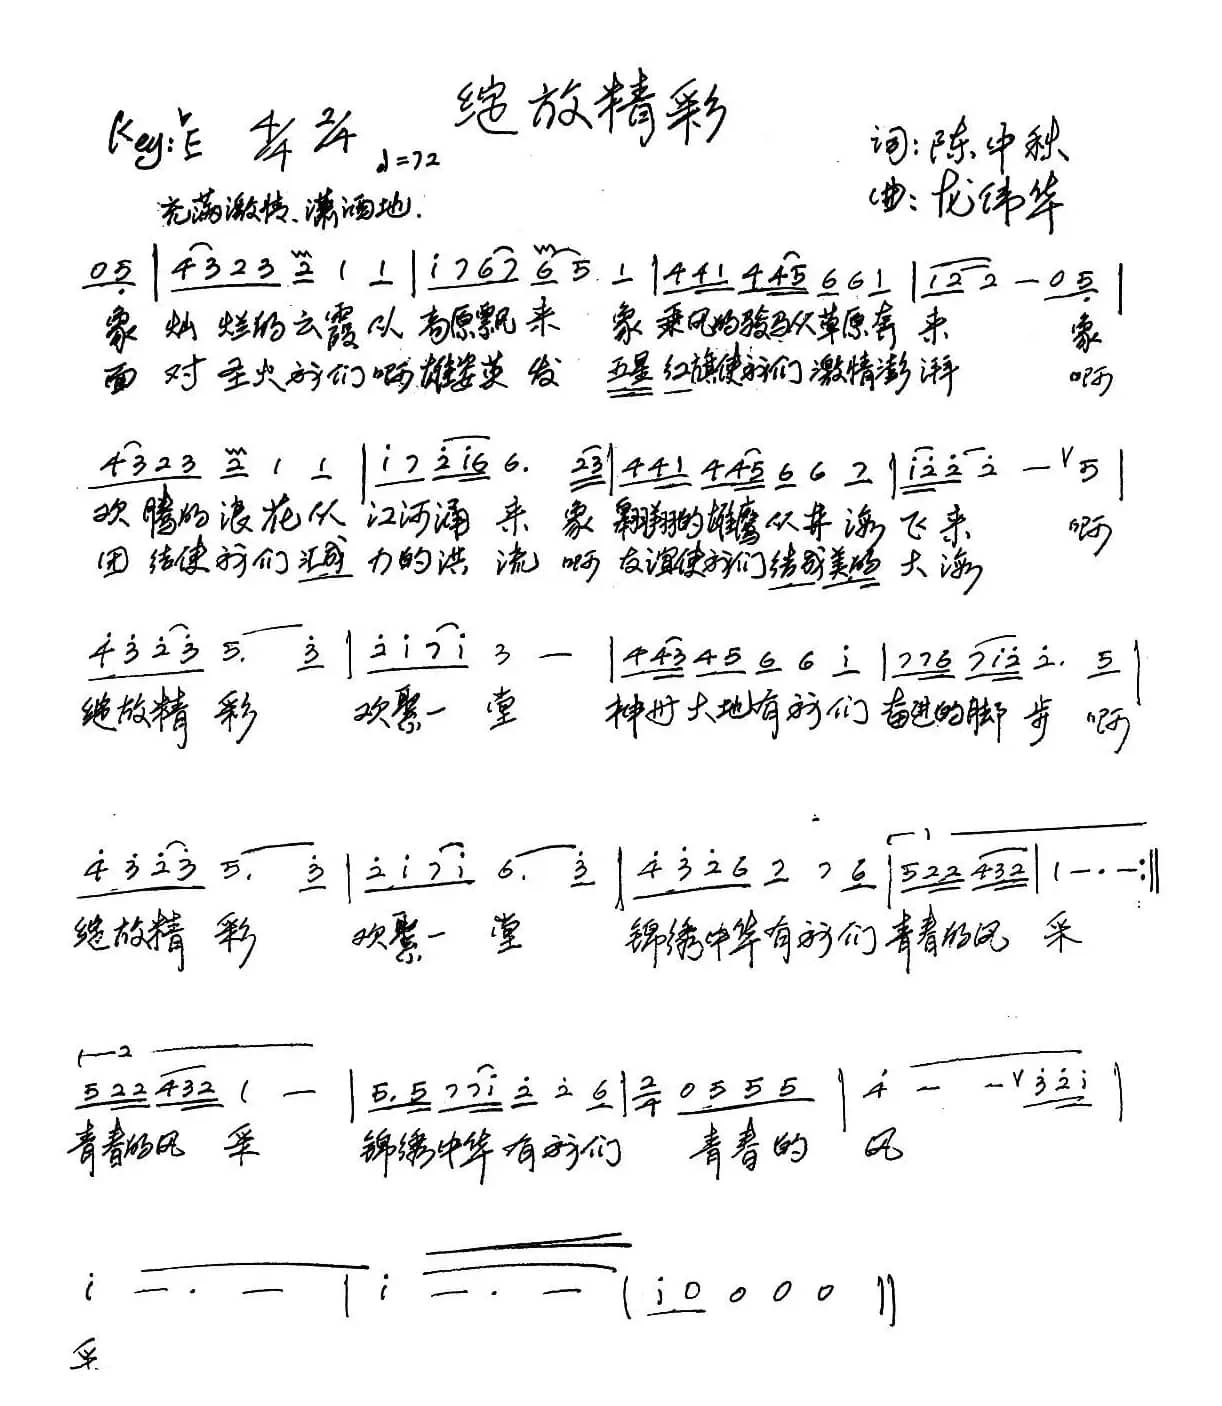 绽放精彩
Key: ♭E 4/4 2/4 ♩=72
词:陈中秋
曲:龙纬华
充满激情、潇洒地.
05 | 4323 2 1 1 | i767 6 5. 1 | 441 445 6 6 1 | i2 2 — 05 |
象 灿 烂的云霞从 高原飘 来 象 乘风的骏马从草原奔 来 象
面 对 圣火我们啊雄姿英 发 五星红旗使我们激情澎湃 啊
4323 2 1 1 | i7 2i6 6. 23 | 441 445 6 6 2 | i2 2 2 — ∨5 |
欢 腾的浪花从 江河涌 来 象 翱翔的雄鹰从 海 飞来 啊
团 结使我们汇成 力的洪 流 啊 友谊使我们结成美的 大海
4323 5. 3 | 2i7i 3 — | 443 45 6 6 i | 776 7i2 2. 5 |
绽放精 彩 欢聚一 堂 神州大地有我们 奋进的脚 步 啊
1
4323 5. 3 | 2i7i 6. 3 | 4326 2 7 6 | 522 432 | 1 — · — :||
绽放精 彩 欢聚一 堂 锦绣中华有我们 青春的风 采
2
522 432 1 — | 5. 5 77i 2 2 6 | 2/4 0555 | 4 — — ∨32i |
青春的风 采 锦绣中华有我们 青春的 风
i — · — | i — · — | i0 0 0 0 ||
采